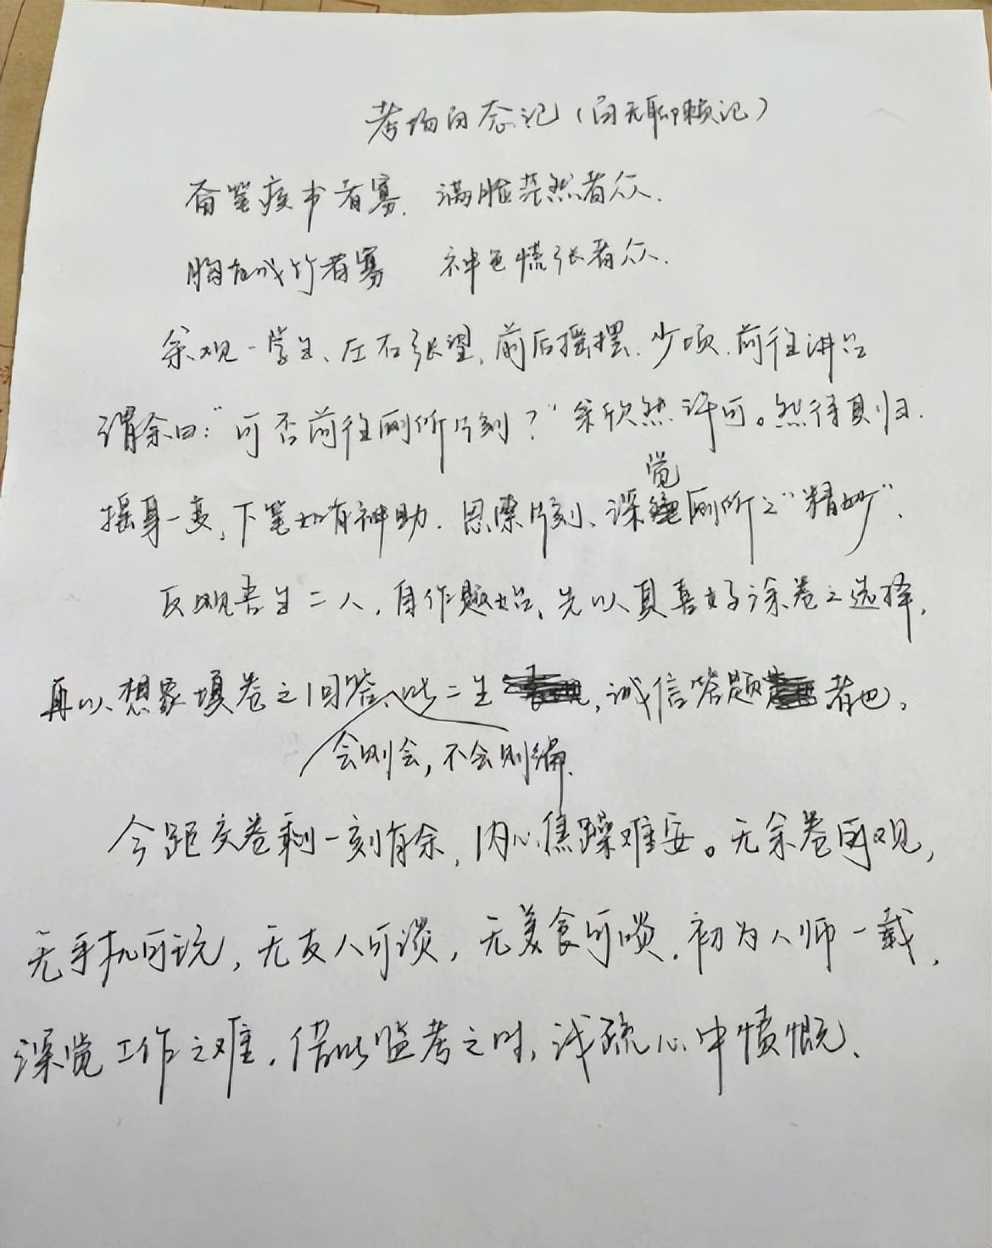 考场百态记（百无聊赖记）
奋笔疾书者寡. 满脸茫然者众.
胸有成竹者寡 神色慌张者众.
余观一学生、左右张望, 前后摇摆. 少顷. 前往讲台
谓余曰：“可否前往厕所片刻？”余欣然许可。然待其归.
摇身一变, 下笔如有神助. 思索片刻、深觉厕所之“精妙”.
反观吾生二人, 自作题始、先以真喜好涂卷之选择,
再以想象填卷之回答、会则会, 不会则编. 此二生, 诚信答题者也。
今距交卷剩一刻有余, 内心焦躁难安。无余卷可观,
无手机可玩, 无友人可谈, 无美食可啖. 初为人师一载,
深觉工作之难. 借此监考之时, 浅疏心中愤慨.